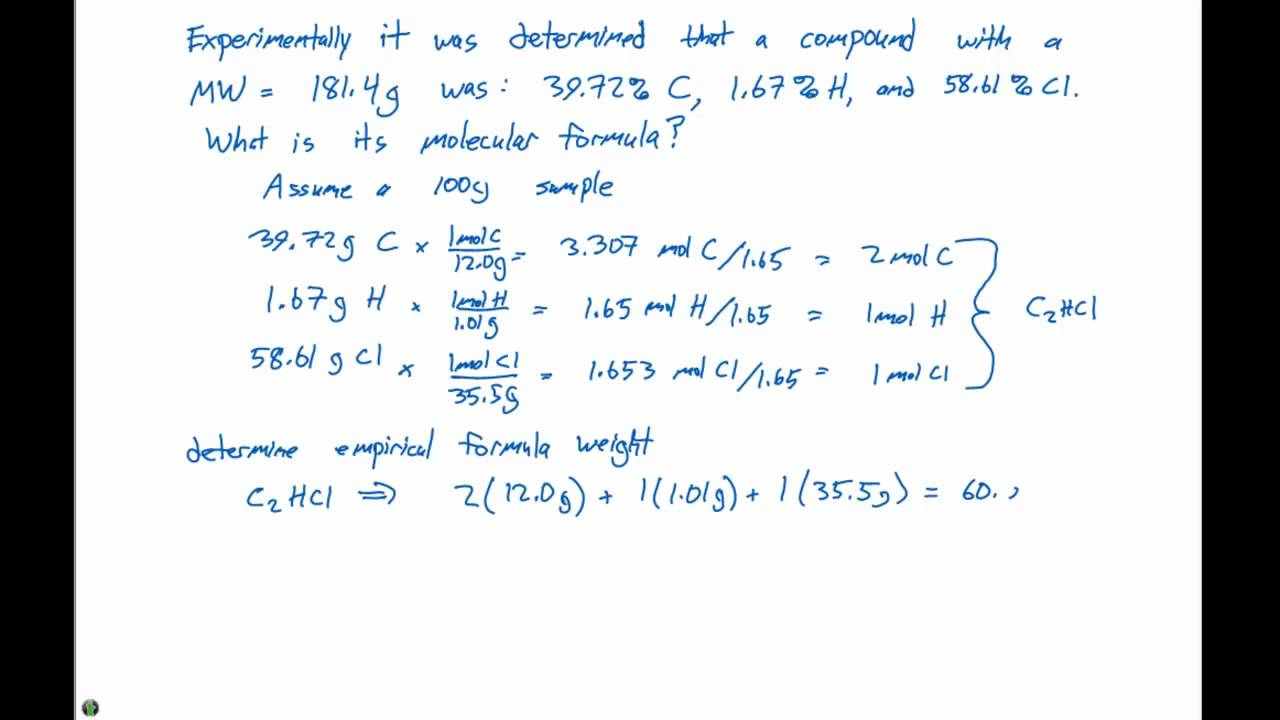 Experimentally it was determined that a compound with a
MW = 181.4g was: 39.72% C, 1.67% H, and 58.61% Cl.
What is its molecular formula?
Assume a 100g sample
39.72g C × 1mol C/12.0g = 3.307 mol C/1.65 = 2 mol C
1.67g H × 1mol H/1.01g = 1.65 mol H/1.65 = 1mol H } C₂HCl
58.61 g Cl × 1mol Cl/35.5g = 1.653 mol Cl/1.65 = 1 mol Cl
determine empirical formula weight
C₂HCl ⇒ 2(12.0g) + 1(1.01g) + 1(35.5g) = 60.